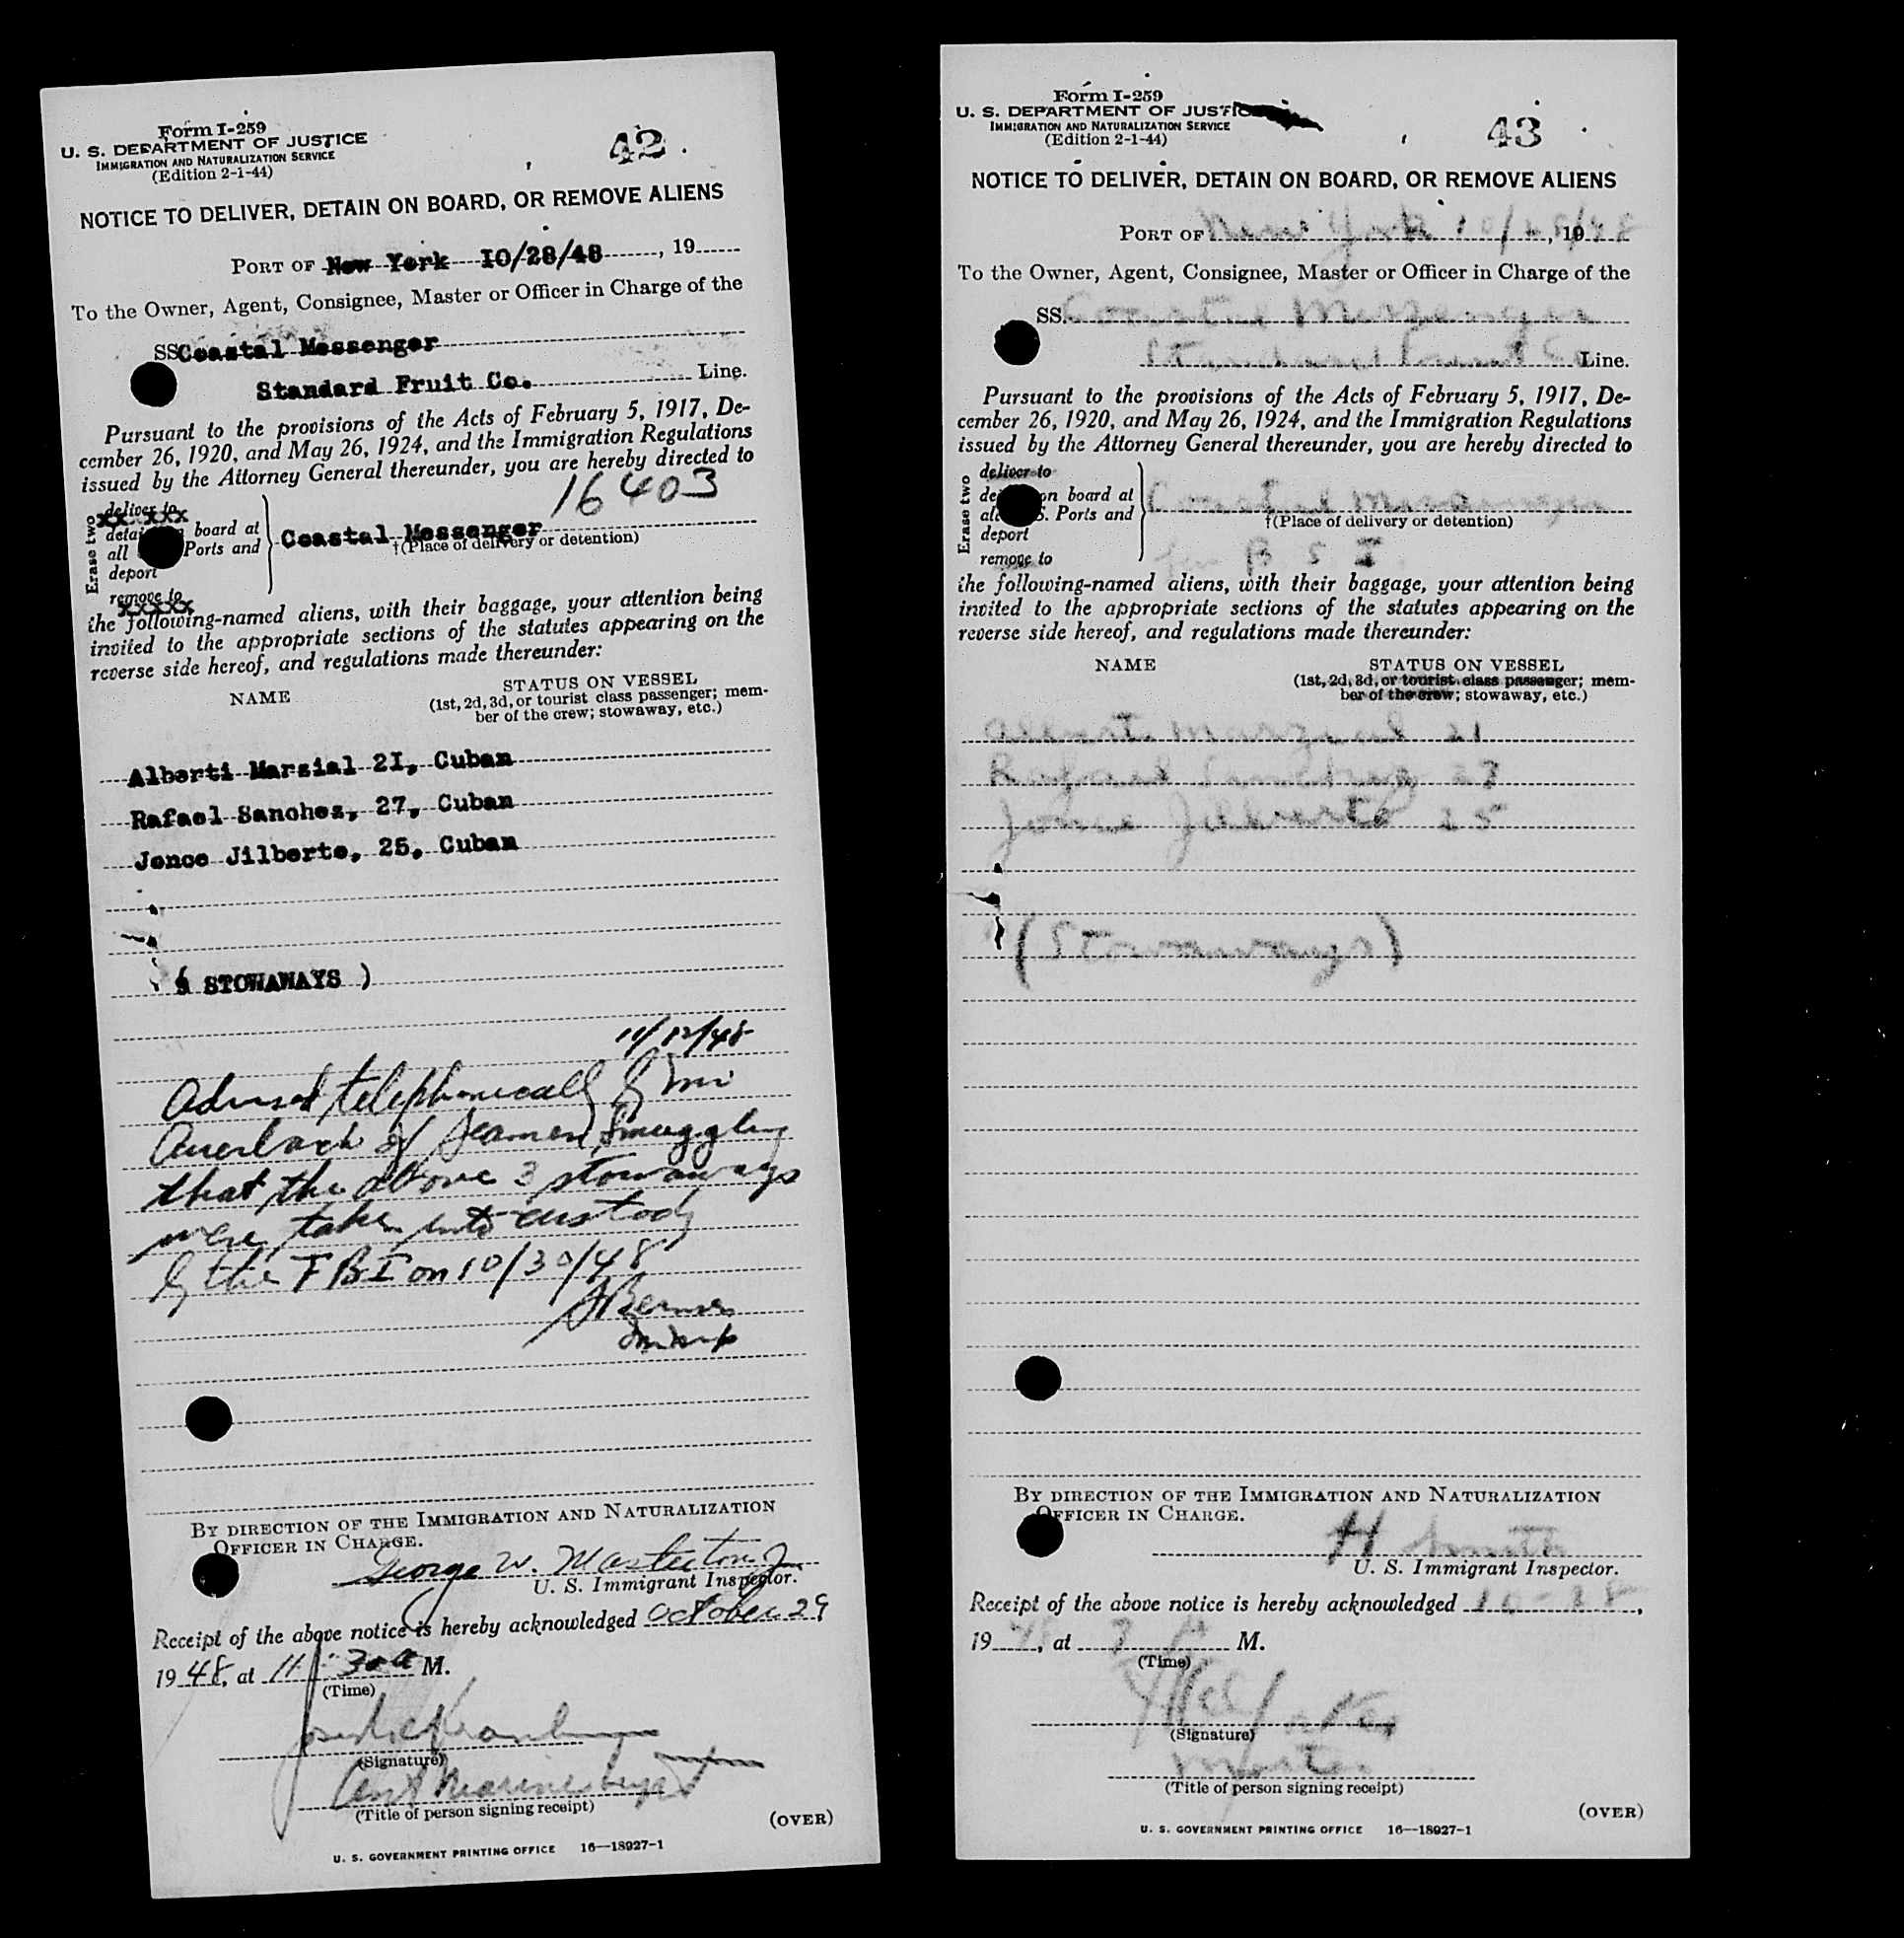 Form I-259
U. S. DEPARTMENT OF JUSTICE
IMMIGRATION AND NATURALIZATION SERVICE
(Edition 2-1-44)
42
NOTICE TO DELIVER, DETAIN ON BOARD, OR REMOVE ALIENS
PORT OF New York 10/28/48, 19
To the Owner, Agent, Consignee, Master or Officer in Charge of the
SS Coastal Messenger
Standard Fruit Co. Line.
Pursuant to the provisions of the Acts of February 5, 1917, De-
cember 26, 1920, and May 26, 1924, and the Immigration Regulations
issued by the Attorney General thereunder, you are hereby directed to
16403
Erase two
deliver to
detai board at
all Ports and
deport
remove to
Coastal Messenger
†(Place of delivery or detention)
the following-named aliens, with their baggage, your attention being
invited to the appropriate sections of the statutes appearing on the
reverse side hereof, and regulations made thereunder:
NAME
STATUS ON VESSEL
(1st, 2d, 3d, or tourist class passenger; mem-
ber of the crew; stowaway, etc.)
Alberti Marsial 2I, Cuban
Rafael Sanchez, 27, Cuban
Jonce Jilberto, 25, Cuban
( STOWAWAYS )
11/12/48
Advised telephonically by Mr
Auerbach of Seamen Smuggling
that the above 3 stowaways
were taken into custody
by the FBI on 10/30/48
BY DIRECTION OF THE IMMIGRATION AND NATURALIZATION
OFFICER IN CHARGE.
George W. Masterton Jr
U. S. Immigrant Inspector.
Receipt of the above notice is hereby acknowledged October 29
1948, at 11:30 a M.
(Time)
(Signature)
(Title of person signing receipt)
(OVER)
U. S. GOVERNMENT PRINTING OFFICE 16—18927-1
Form I-259
U. S. DEPARTMENT OF JUSTIC
IMMIGRATION AND NATURALIZATION SERVICE
(Edition 2-1-44)
43
NOTICE TO DELIVER, DETAIN ON BOARD, OR REMOVE ALIENS
PORT OF New York 10/28/, 1948
To the Owner, Agent, Consignee, Master or Officer in Charge of the
SS. Coastal Messenger
Standard Fruit Co Line.
Pursuant to the provisions of the Acts of February 5, 1917, De-
cember 26, 1920, and May 26, 1924, and the Immigration Regulations
issued by the Attorney General thereunder, you are hereby directed to
Erase two
deliver to
de on board at
all S. Ports and
deport
remove to
Coastal Messenger
†(Place of delivery or detention)
for B S I
the following-named aliens, with their baggage, your attention being
invited to the appropriate sections of the statutes appearing on the
reverse side hereof, and regulations made thereunder:
NAME
STATUS ON VESSEL
(1st, 2d, 3d, or tourist class passenger; mem-
ber of the crew; stowaway, etc.)
Alberti Marzial 21
Rafael Sanchez 27
Jonce Jilberto 25
(Stowaways)
BY DIRECTION OF THE IMMIGRATION AND NATURALIZATION
OFFICER IN CHARGE.
H Smith
U. S. Immigrant Inspector.
Receipt of the above notice is hereby acknowledged 10-28,
1948, at M.
(Time)
(Signature)
Master
(Title of person signing receipt)
(OVER)
U. S. GOVERNMENT PRINTING OFFICE 16—18927-1